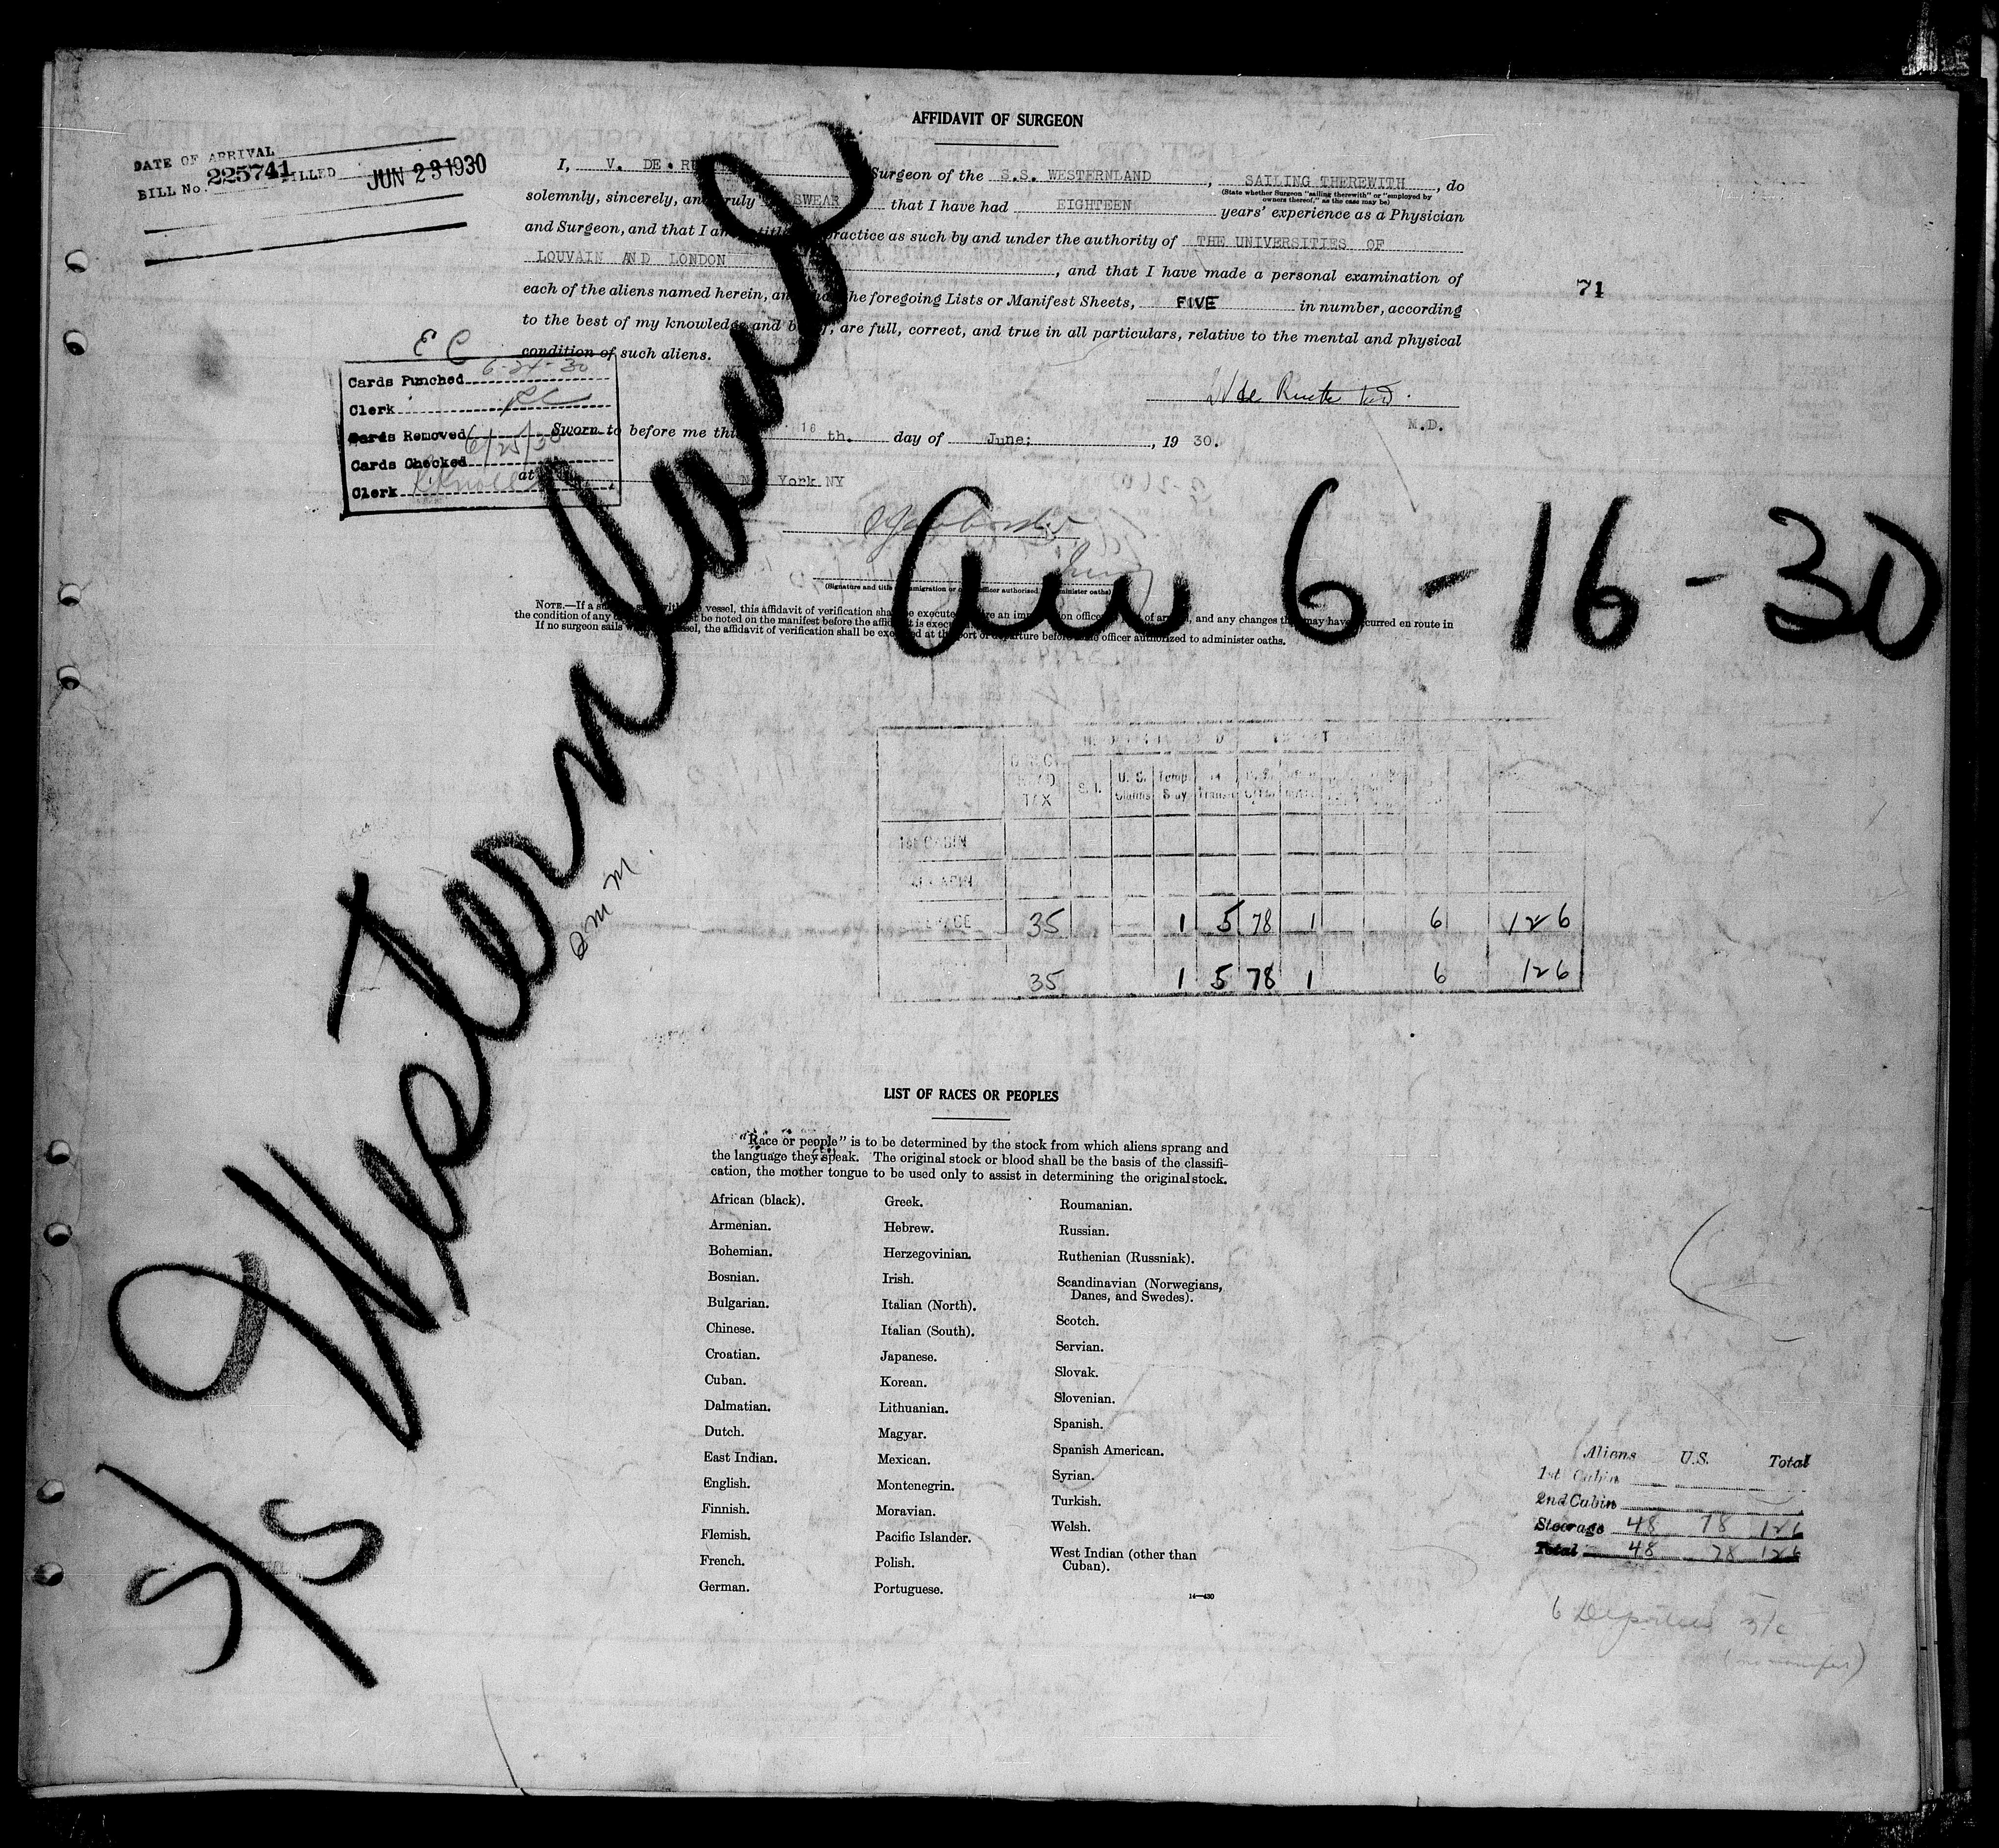 AFFIDAVIT OF SURGEON
DATE OF ARRIVAL
BILL No. 225741 FILLED JUN 23 1930
I, V. DE. Surgeon of the S.S. WESTERNLAND, SAILING THEREWITH, do
(State whether Surgeon "sailing therewith" or "employed by
owners thereof," as the case may be)
solemnly, sincerely, and truly SWEAR that I have had EIGHTEEN years' experience as a Physician
and Surgeon, and that I am practice as such by and under the authority of THE UNIVERSITIES OF
LOUVAIN AND LONDON, and that I have made a personal examination of
each of the aliens named herein, and the foregoing Lists or Manifest Sheets, FIVE in number, according
to the best of my knowledge and belief, are full, correct, and true in all particulars, relative to the mental and physical
condition of such aliens.
71
E C
Cards Punched 6-24-30
Clerk RC
Cards Removed
Cards Checked 6/25/30
Clerk
M.D.
Sworn to before me this 16 th. day of June; , 19 30.
at New York NY
(Signature and title immigration or officer authorized administer oaths)
NOTE.—If a vessel, this affidavit of verification shall be executed before an immigration officer of arrival, and any changes that may have occurred en route in
the condition of any be noted on the manifest before the affidavit is executed
If no surgeon sails vessel, the affidavit of verification shall be executed at the port of departure before officer authorized to administer oaths.
S/S Westernland
arr 6-16-30
TAX S.I. U.S. Citims Temp. Stay
1st CABIN
35 1 5 78 1 6 126
35 1 5 78 1 6 126
LIST OF RACES OR PEOPLES
"Race or people" is to be determined by the stock from which aliens sprang and
the language they speak. The original stock or blood shall be the basis of the classifi-
cation, the mother tongue to be used only to assist in determining the original stock.
African (black).
Armenian.
Bohemian.
Bosnian.
Bulgarian.
Chinese.
Croatian.
Cuban.
Dalmatian.
Dutch.
East Indian.
English.
Finnish.
Flemish.
French.
German.
Greek.
Hebrew.
Herzegovinian.
Irish.
Italian (North).
Italian (South).
Japanese.
Korean.
Lithuanian.
Magyar.
Mexican.
Montenegrin.
Moravian.
Pacific Islander.
Polish.
Portuguese.
Roumanian.
Russian.
Ruthenian (Russniak).
Scandinavian (Norwegians,
Danes, and Swedes).
Scotch.
Servian.
Slovak.
Slovenian.
Spanish.
Spanish American.
Syrian.
Turkish.
Welsh.
West Indian (other than
Cuban).
14—430
Aliens U.S. Total
1st Cabin
2nd Cabin
Steerage 48 78 126
Total 48 78 126
6 Deportees 3/c
(no manifest)